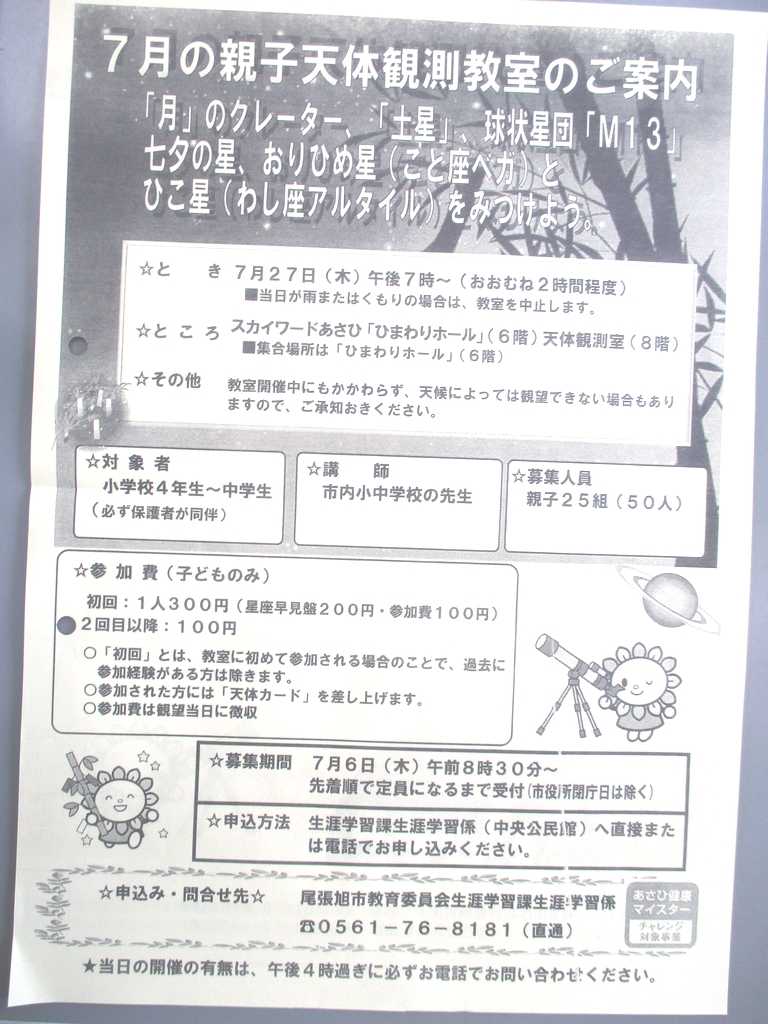 7月の親子天体観測教室のご案内
「月」のクレーター、「土星」、球状星団「M13」
七夕の星、おりひめ星（こと座ベガ）と
ひこ星（わし座アルタイル）をみつけよう。
☆と　き 7月27日（木）午後7時～（おおむね2時間程度）
■当日が雨またはくもりの場合は、教室を中止します。
☆ところ スカイワードあさひ「ひまわりホール」（6階）天体観測室（8階）
■集合場所は「ひまわりホール」（6階）
☆その他 教室開催中にもかかわらず、天候によっては観望できない場合もあり
ますので、ご承知おきください。
☆対象者
小学校4年生～中学生
（必ず保護者が同伴）
☆講　師
市内小中学校の先生
☆募集人員
親子25組（50人）
☆参加費（子どものみ）
初回：1人300円（星座早見盤200円・参加費100円）
2回目以降：100円
○「初回」とは、教室に初めて参加される場合のことで、過去に
参加経験がある方は除きます。
○参加された方には「天体カード」を差し上げます。
○参加費は観望当日に徴収
☆募集期間 7月6日（木）午前8時30分～
先着順で定員になるまで受付（市役所閉庁日は除く）
☆申込方法 生涯学習課生涯学習係（中央公民館）へ直接また
は電話でお申し込みください。
☆申込み・問合せ先☆ 尾張旭市教育委員会生涯学習課生涯学習係
☎0561－76－8181（直通）
あさひ健康
マイスター
チャレンジ
対象事業
★当日の開催の有無は、午後4時過ぎに必ずお電話でお問い合わせください。